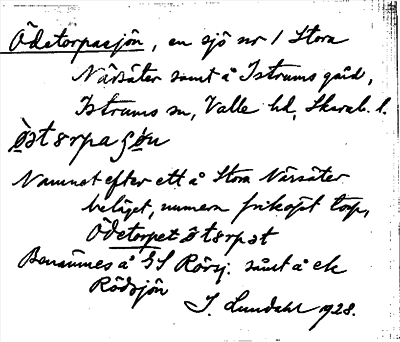 Ödetorpasjön, en sjö nr 1 Stora
Nårsäter samt å Istrums gård,
Istrums sn, Valle hd, Skarab. l.
Namnet efter ett å Stora Nårsäter
beläget, numera friköpt torp,
Ödetorpet
Benämnes å GS samt å ek
Rödsjön
J. Lundahl 1928.